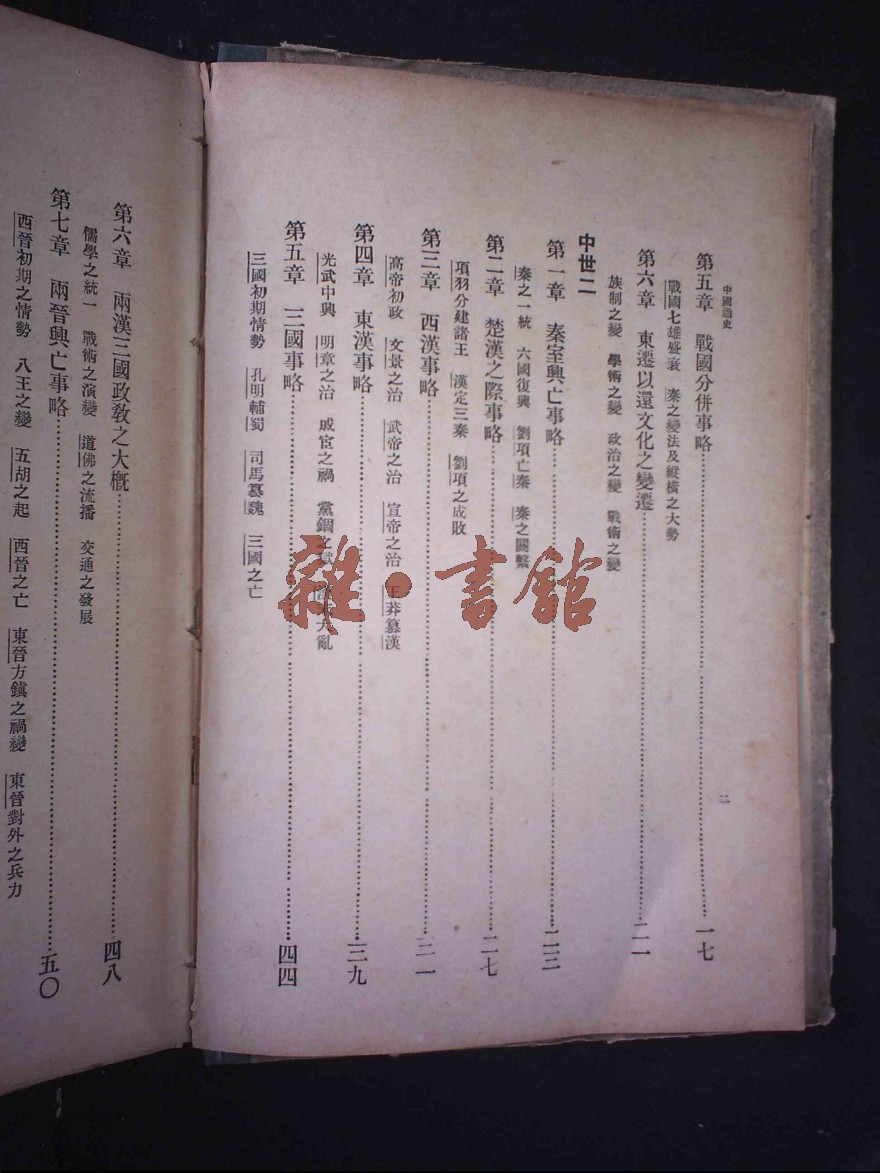 中國通史
二
第五章 戰國分併事略 一七
戰國七雄盛衰 秦之變法及縱橫之大勢
第六章 東遷以還文化之變遷 二一
族制之變 學術之變 政治之變 戰術之變
中世二
第一章 秦室興亡事略 二三
秦之一統 六國復興 劉項亡秦 秦之關繫
第二章 楚漢之際事略 二七
項羽分建諸王 漢定三秦 劉項之成敗
第三章 西漢事略 三一
高帝初政 文景之治 武帝之治 宣帝之治 王莽篡漢
第四章 東漢事略 三九
光武中興 明章之治 戚宦之禍 黨錮之 大亂
第五章 三國事略 四四
三國初期情勢 孔明輔蜀 司馬篡魏 三國之亡
第六章 兩漢三國政教之大概 四八
儒學之統一 戰術之演變 道佛之流播 交通之發展
第七章 兩晉興亡事略 五〇
西晉初期之情勢 八王之變 五胡之起 西晉之亡 東晉方鎮之禍變 東晉對外之兵力
雜·書館